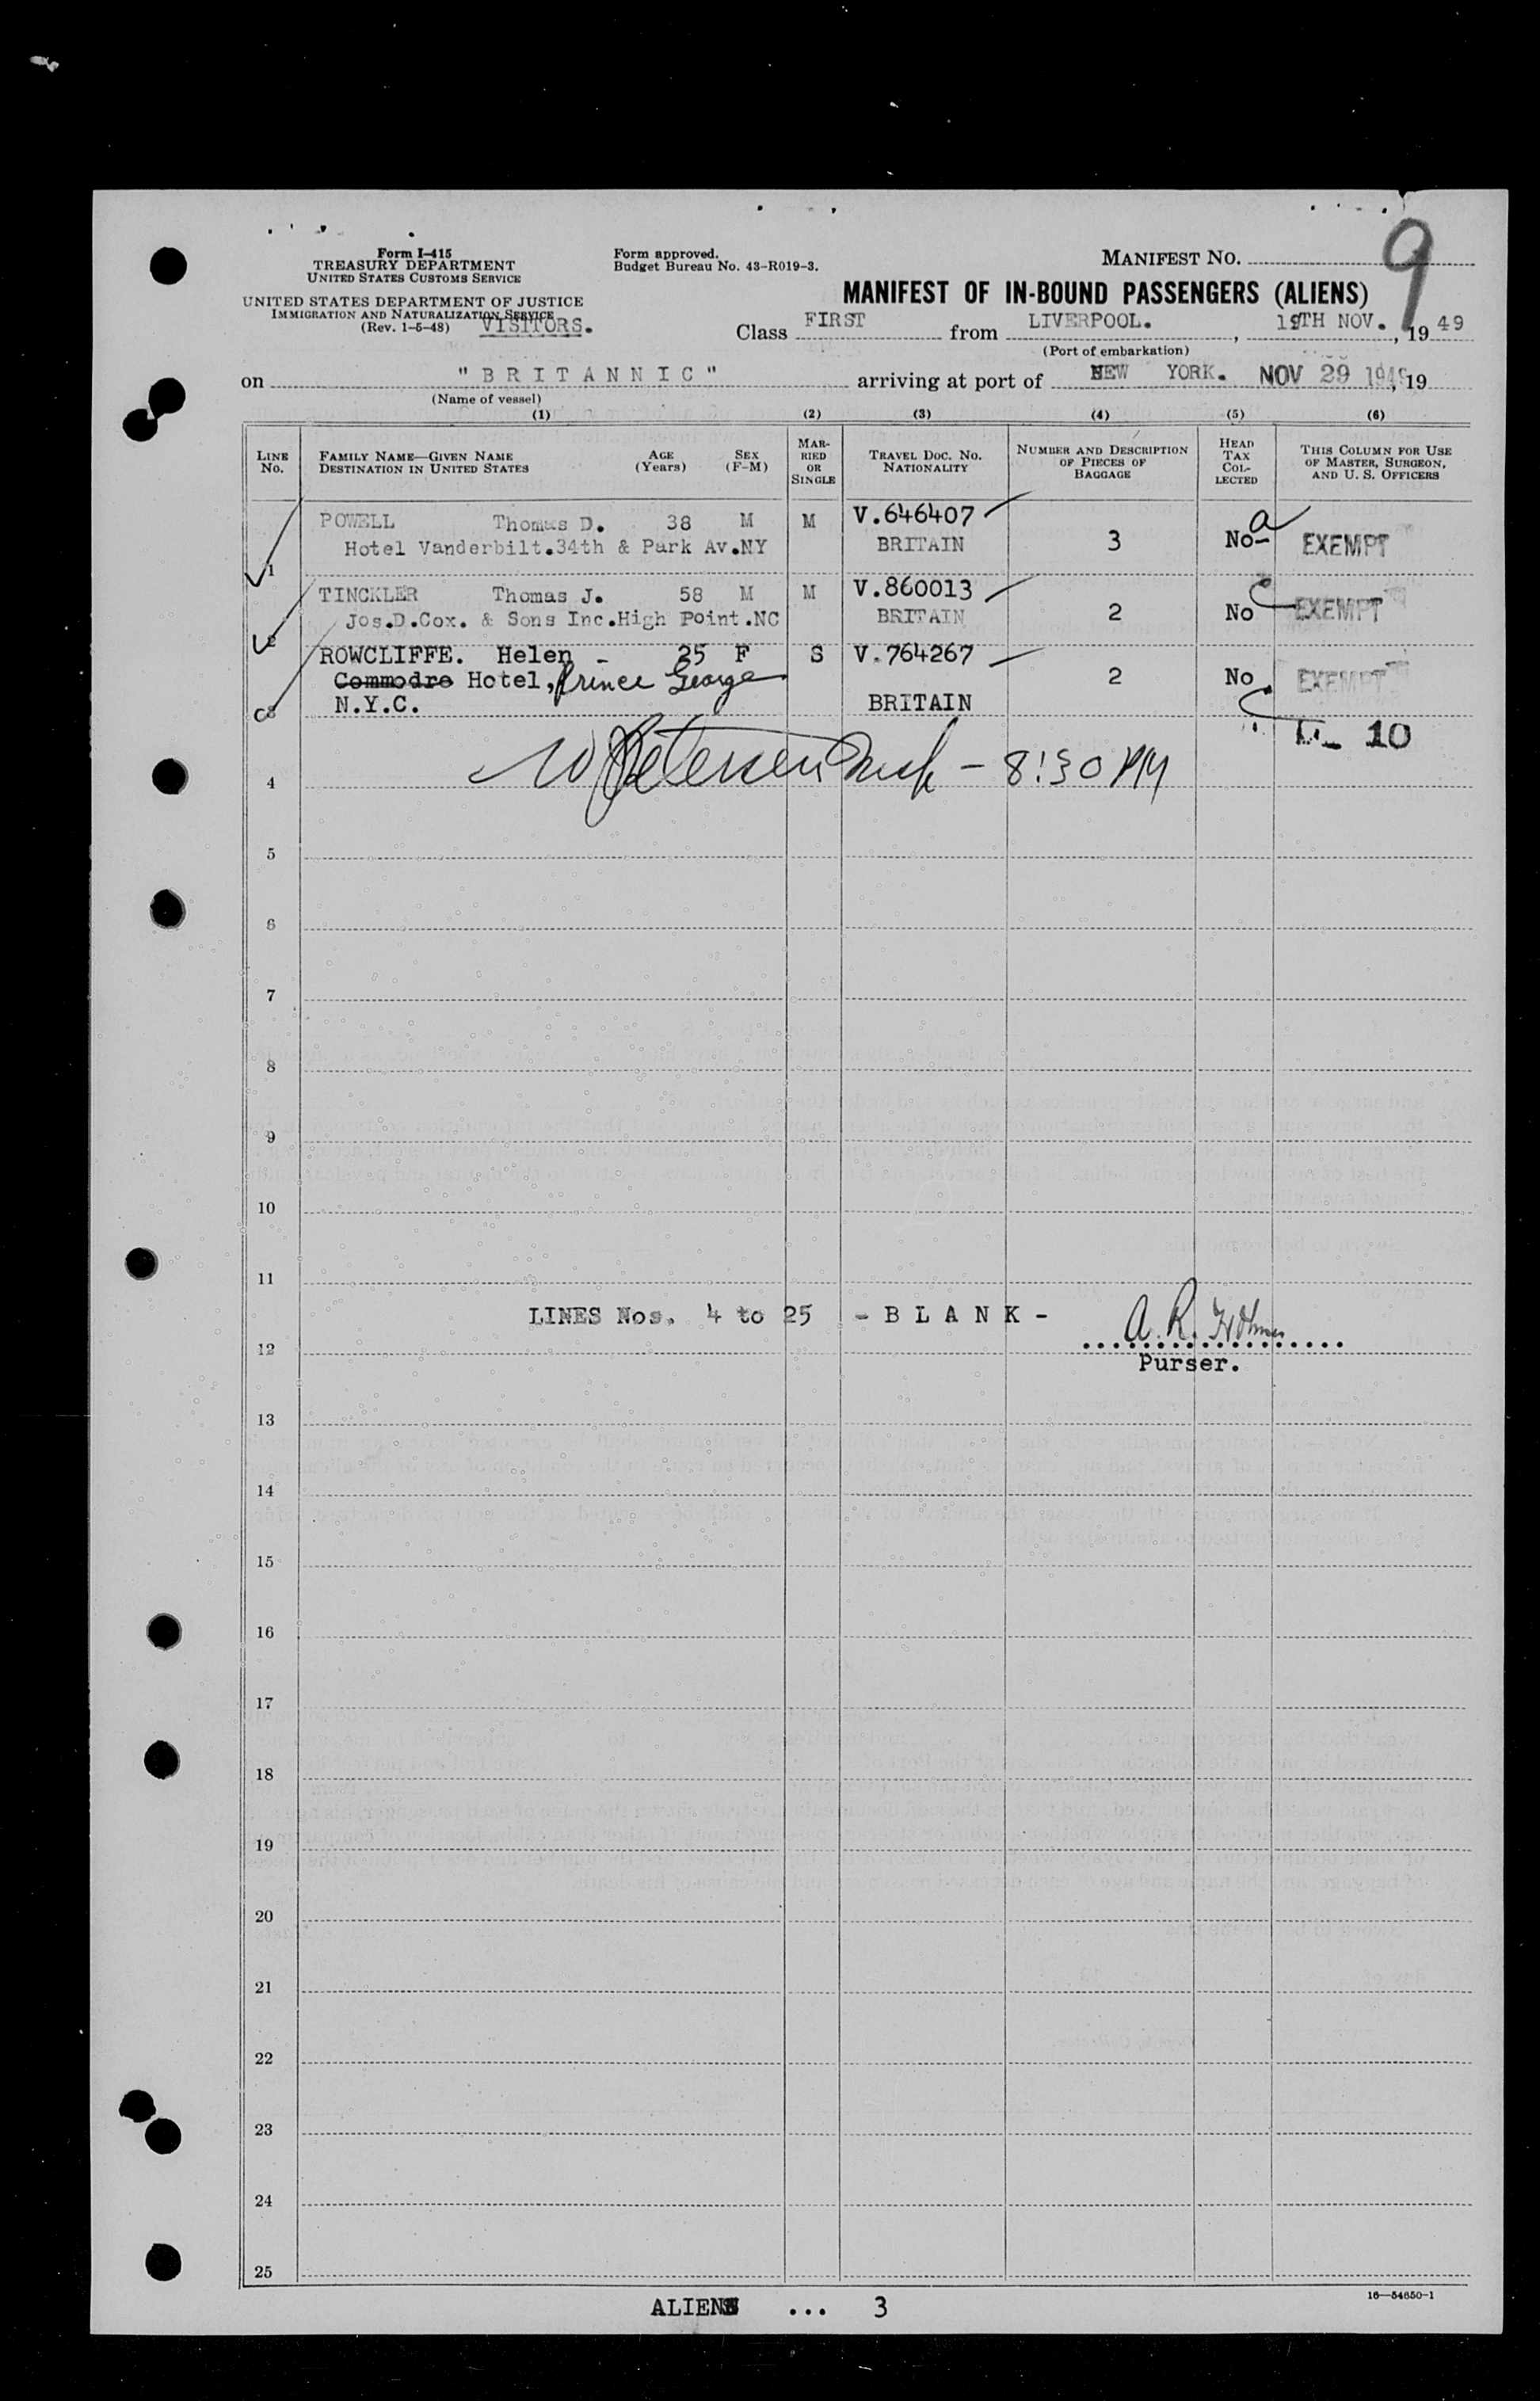 Form I-415
TREASURY DEPARTMENT
UNITED STATES CUSTOMS SERVICE
UNITED STATES DEPARTMENT OF JUSTICE
IMMIGRATION AND NATURALIZATION SERVICE
(Rev. 1-5-48) VISITORS.
Form approved.
Budget Bureau No. 43-R019-3.
MANIFEST NO. 9
MANIFEST OF IN-BOUND PASSENGERS (ALIENS)
Class FIRST from LIVERPOOL. , 19TH NOV. , 19 49
(Port of embarkation)
on "BRITANNIC" arriving at port of NEW YORK. NOV 29 1949, 19
(Name of vessel)
(1) (2) (3) (4) (5) (6)
LINE NO.
FAMILY NAME—GIVEN NAME AGE (Years) SEX (F-M)
DESTINATION IN UNITED STATES
MARRIED OR SINGLE
TRAVEL DOC. NO. NATIONALITY
NUMBER AND DESCRIPTION OF PIECES OF BAGGAGE
HEAD TAX COLLECTED
THIS COLUMN FOR USE OF MASTER, SURGEON, AND U. S. OFFICERS
POWELL Thomas D. 38 M M V.646407
1 Hotel Vanderbilt.34th & Park Av.NY BRITAIN 3 No- a EXEMPT
TINCKLER Thomas J. 58 M M V.860013
2 Jos.D.Cox. & Sons Inc.High Point.NC BRITAIN 2 No EXEMPT
ROWCLIFFE. Helen - 25 F S V.764267
Commodro Hotel, Prince George 2 No EXEMPT
3 N.Y.C. BRITAIN
10
4 Petersen - 8:30 PM
5
6
7
8
9
10
11
LINES Nos. 4 to 25 - B L A N K - A. R.
12
Purser.
13
14
15
16
17
18
19
20
21
22
23
24
25
ALIENS ... 3
16—54650-1